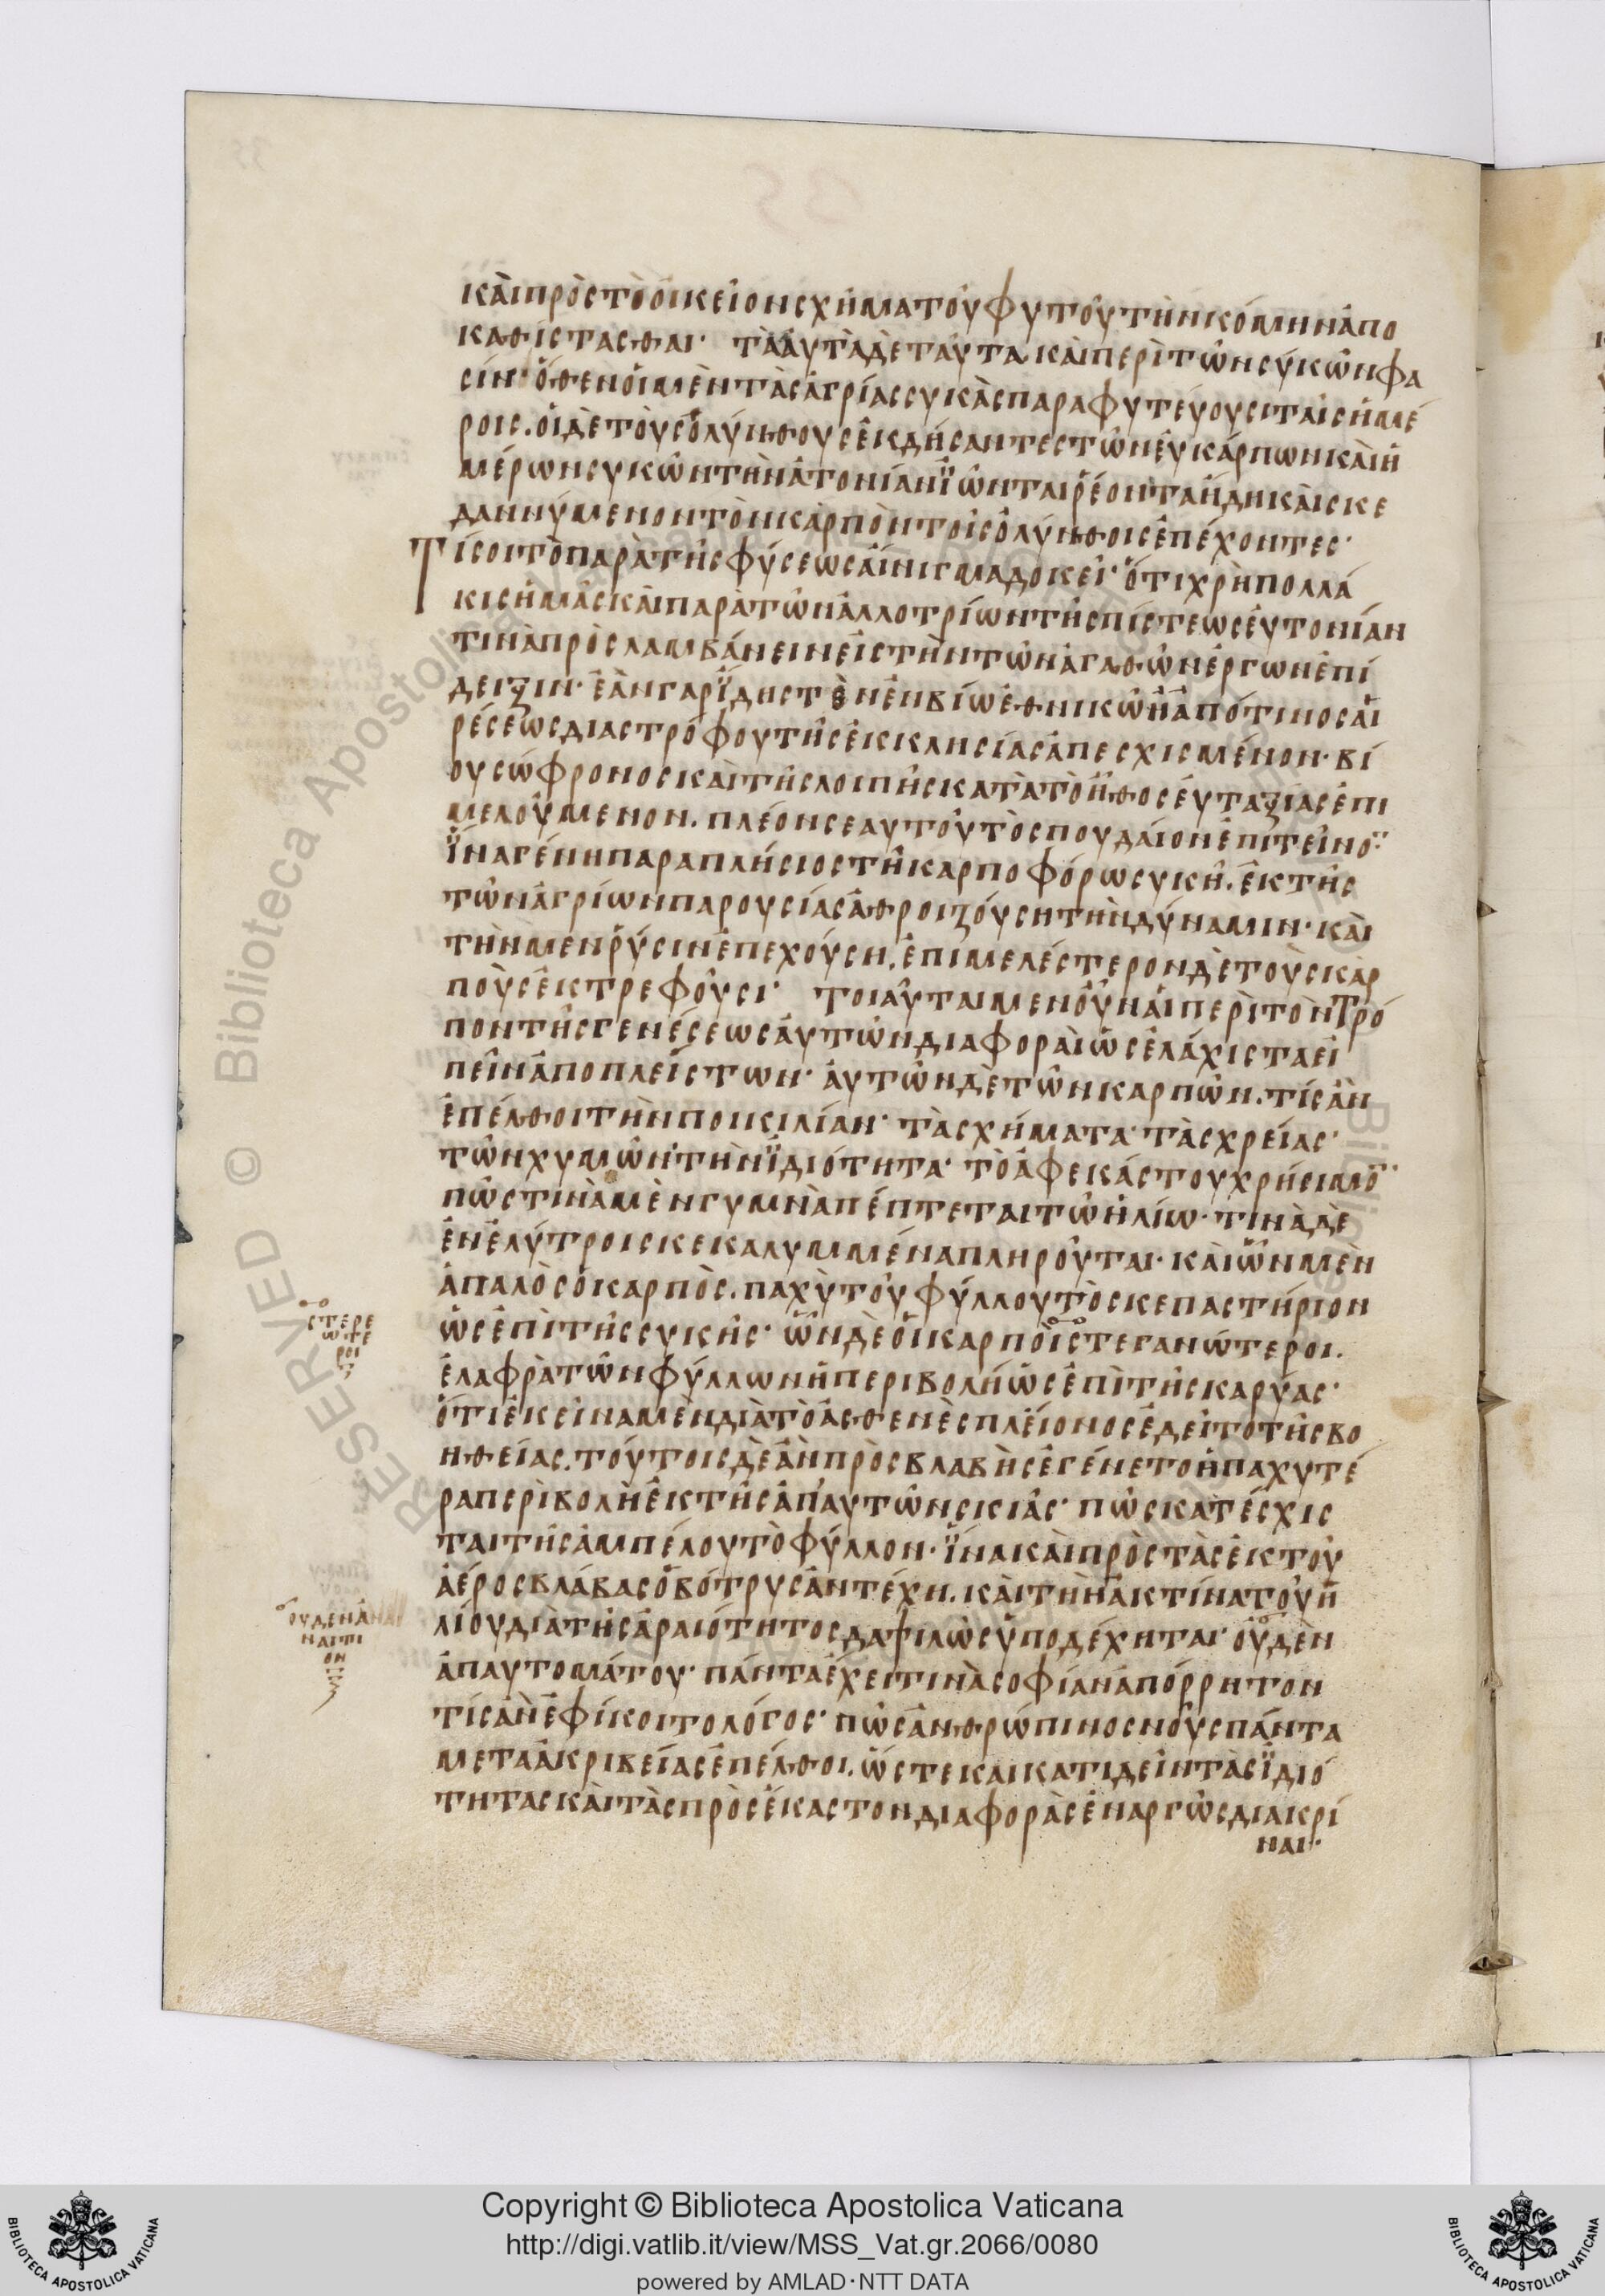 καὶ πρὸς τὸ οἰκεῖον σχῆμα τοῦ φυτοῦ τὴν κόμην ἀπο
καθίστασθαι· τὰ αὐτὰ δὲ ταῦτα καὶ περὶ τῶν συκῶν φα
σίν· ὅθεν οἱ μὲν τὰς ἀγρίας συκὰς παραφυτεύουσι ταῖς ἡμέ
ροις. οἱ δὲ τοὺς ὀλύνθους ἐκδήσαντες τῶν εὐκάρπων καὶ ἡ
μέρων συκῶν τὴν ἀτονίαν ϊῶνται ῥέοντα ἤδη καὶ σκε
δαννύμενον τὸν καρπὸν τοῖς ὀλύνθοις ἐπέχοντες·
Τί σοι τὸ παρὰ τῆς φύσεως αἴνιγμα δοκεῖ· ὅτι χρὴ πολλά
κις ἡμᾶς καὶ παρὰ τῶν ἀλλοτρίων τῆς πίστεως εὐτονίαν
τινὰ προσλαμβάνειν εἰς τὴν τῶν ἀγαθῶν ἔργων ἐπί
δειξιν· ἐὰν γαρ ΐδης τὸν ἐν βίω ἐθνικῶ ἢ ἀπό τινος αἱ
ρέσεως διαστρόφου τῆς ἐκκλησίας ἀπεσχισμένον· βί
ου σώφρονος καὶ τῆς λοιπῆς κατὰ τὸ ἦθος εὐταξίας ἐπι
μελούμενον. πλέον σεαυτοῦ τὸ σπουδαῖον ἐπίτεινο̅·
ΐνα γένη παραπλήσιος τῆ καρποφόρω συκῆ. ἐκ τῆς
τῶν ἀγρίων παρουσίας ἀθροιζούση τὴν δύναμιν· καὶ
τὴν μεν ῥύσιν ἐπεχούση, ἐπιμελέστερον δὲ τοὺς καρ
ποὺς ἐκτρεφούσι· τοιαῦται μεν οὖν αἱ περὶ τὸν τρό
πον τῆς γενέσεως αὐτῶν διαφοραὶ ὡς ἐλάχιστα εἰ
πεῖν ἀπο πλείστων· αὐτῶν δὲ τῶν καρπῶν. τίς ἂν
ἐπέλθοι τὴν ποικιλίαν· τὰ σχήματα· τὰς χρείας·
τῶν χυμῶν τὴν ϊδιότητα· τὸ ἀφ εκάστου χρήσιμο̅·
πῶς τινὰ μὲν γυμνὰ πέπτεται τῶ ἡλίω· τινὰ δὲ
ἐν ἐλύτροις κεκαλυμμένα πληροῦται· καὶ ὧν μὲν
ἁπαλὸς ὁ καρπὸς. παχὺ τοῦ φύλλου τὸ σκεπαστήριον
ὡς ἐπὶ τῆς συκῆς· ὧν δὲ οἱ καρποὶ στεγανώτεροι.
ἐλαφρὰ τῶν φύλλων ἡ περιβολή ὡς ἐπὶ τῆς καρύας·
ὅτι ἐκεῖνα μὲν διὰ τὸ ἀσθενὲς πλείονος ἐδεῖτο τῆς βο
ηθείας. τούτοις δὲ ἂν πρὸς βλαβῆς ἐγένετο ἡ παχυτέ
ρα περιβολὴ ἐκ τῆς ἀπ' αυτῶν σκιᾶς· πῶς κατέσχις
ται τῆς ἀμπέλου τὸ φύλλον· ΐνα καὶ πρὸς τὰς ἐκ τοῦ
ἀέρος βλάβας ὁ βότρυς ἀντέχη. καὶ τὴν ἀκτίνα τοῦ ἡ
λίου διὰ τῆς ἀραιότητος δαψιλῶς ὑποδέχηται· οὐδὲν
ἀπαυτομάτου· πάντα ἔχει τινὰ σοφίαν ἀπόρρητον
τίς ἂν ἐφίκοιτο λόγος· πῶς ἀνθρώπινος νοῦς πάντα
μετα ἀκριβείας ἐπέλθοι. ὥστε και κατιδεῖν τὰς ϊδιό
τητας καὶ τὰς πρὸς ἕκαστον διαφορὰς ἐναργῶς διακρί
ναι·
στερε
ωτε
ροι
οὐδεν ἀναι
ναιτι
ον
Copyright © Biblioteca Apostolica Vaticana
http://digi.vatlib.it/view/MSS_Vat.gr.2066/0080
powered by AMLAD·NTT DATA
BIBLIOTECA APOSTOLICA VATICANA
BIBLIOTECA APOSTOLICA VATICANA